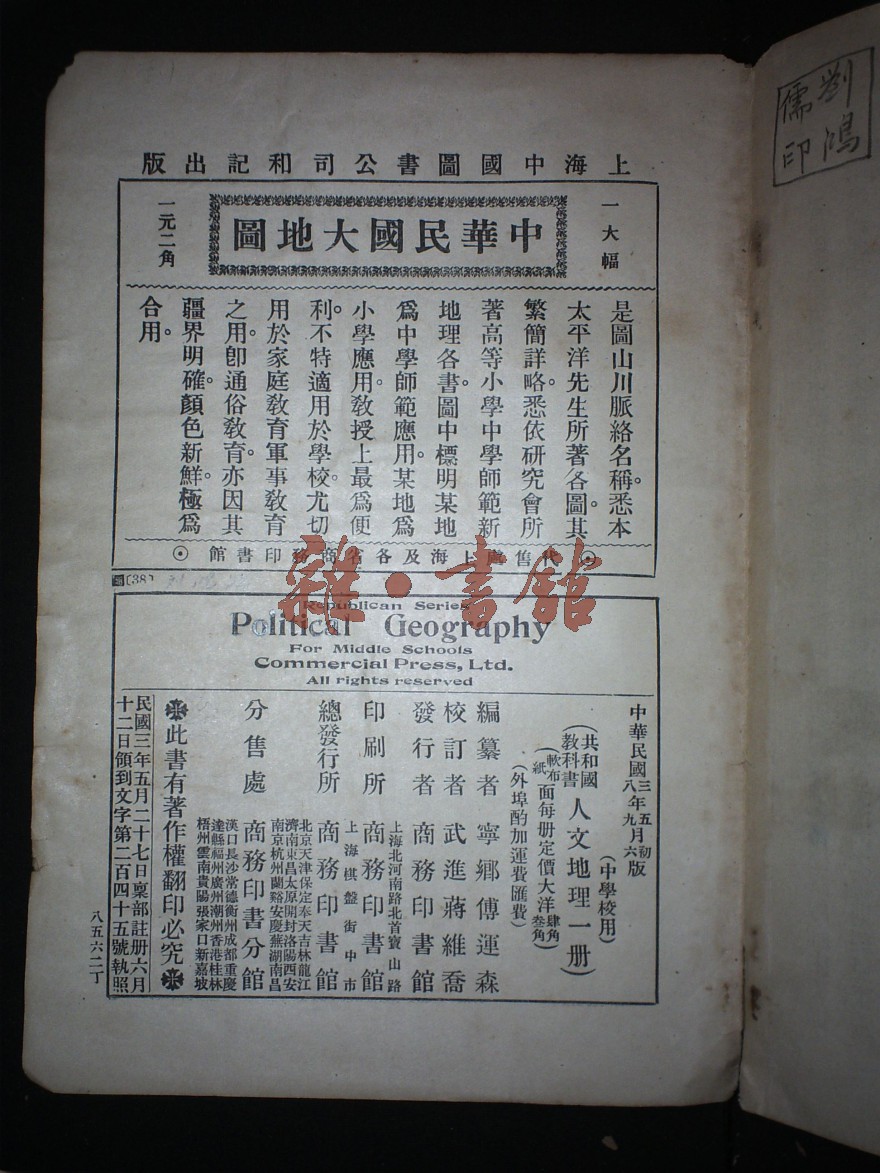 上海中國圖書公司和記出版
一大幅
中華民國大地圖
一元二角
是圖山川脈絡名稱。悉本
太平洋先生所著各圖。其
繁簡詳略。悉依研究會所
著高等小學中學師範新
地理各書。圖中標明某地
爲中學師範應用。某地爲
小學應用。教授上最爲便
利。不特適用於學校。尤切
用於家庭教育軍事教育
之用。卽通俗教育。亦因其
疆界明確。顏色新鮮。極爲
合用。
代售處上海及各省商務印書館
(38)
Republican Series
Political Geography
For Middle Schools
Commercial Press, Ltd.
All rights reserved
中華民國三年五月初版
八年九月六版
(中學校用)
(共和國教科書人文地理一册)
(軟布面每册定價大洋肆角)
(紙面每册定價大洋叁角)
(外埠酌加運費匯費)
編纂者 寧鄉傅運森
校訂者 武進蔣維喬
發行者 商務印書館
上海北河南路北首寶山路
印刷所 商務印書館
上海棋盤街中市
總發行所 商務印書館
北京天津保定奉天吉林龍江
濟南東昌太原開封洛陽西安
南京杭州蘭谿安慶蕪湖南昌
分售處 商務印書分館
漢口長沙常德衡州成都重慶
達縣福州廣州潮州香港桂林
梧州雲南貴陽張家口新嘉坡
此書有著作權翻印必究
民國三年五月二十七日稟部註册六月
十二日領到文字第二百四十五號執照
八五六二丁
劉鴻
儒印
雜·書館